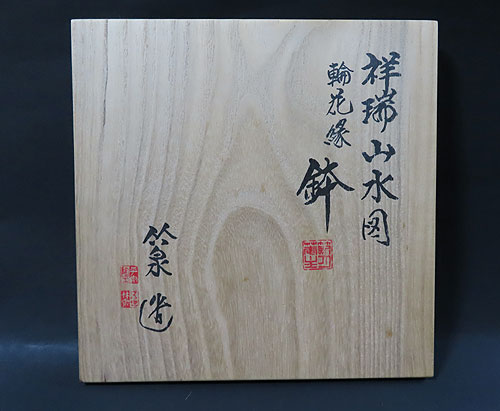 祥瑞山水図
輪花縁
鉢
竹泉造